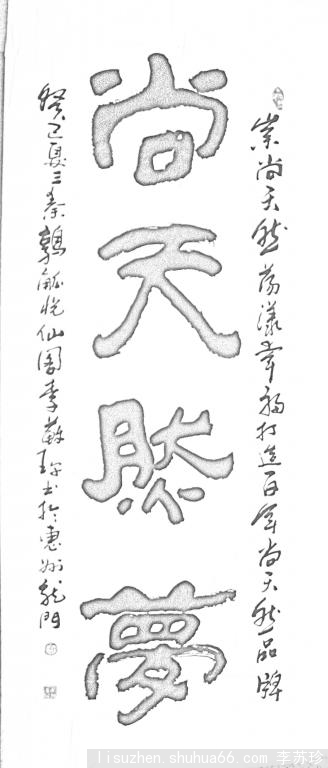 崇尚天然荡漾幸福打造百年尚天然品牌
尚天然夢
癸巳夏三秦鶉觚悦仙阁李蘇珍书於惠州龍門
lisuzhen.shuhua66.com 李苏珍